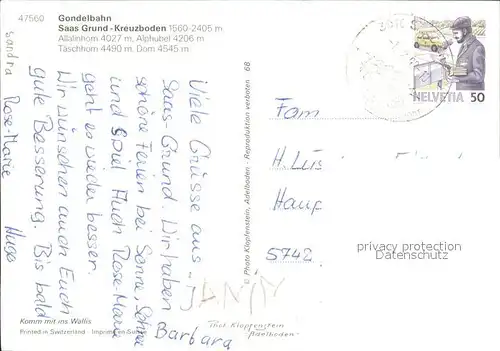 47560 Gondelbahn
Saas Grund - Kreuzboden 1560-2405 m
Allalinhorn 4027 m, Alphubel 4206 m
Täschhorn 4490 m, Dom 4545 m
HELVETIA 50
Viele Grüsse aus
Saas-Grund. Wir haben
schöne Ferien bei Sonne, Schnee
und Spiel. Auch Rose-Marie
geht es wieder besser.
Wir wünschen auch Euch
gute Besserung. Bis bald
Sandra Rose-Marie Hugo
Barbara
JANNY
© Photo Klopfenstein, Adelboden - Reproduktion verboten 68
Fam
H. Lüs
Haup
5742
privacy protection
Datenschutz
Komm mit ins Wallis
Printed in Switzerland - Imprimé en Suisse
Phot. Klopfenstein
Adelboden